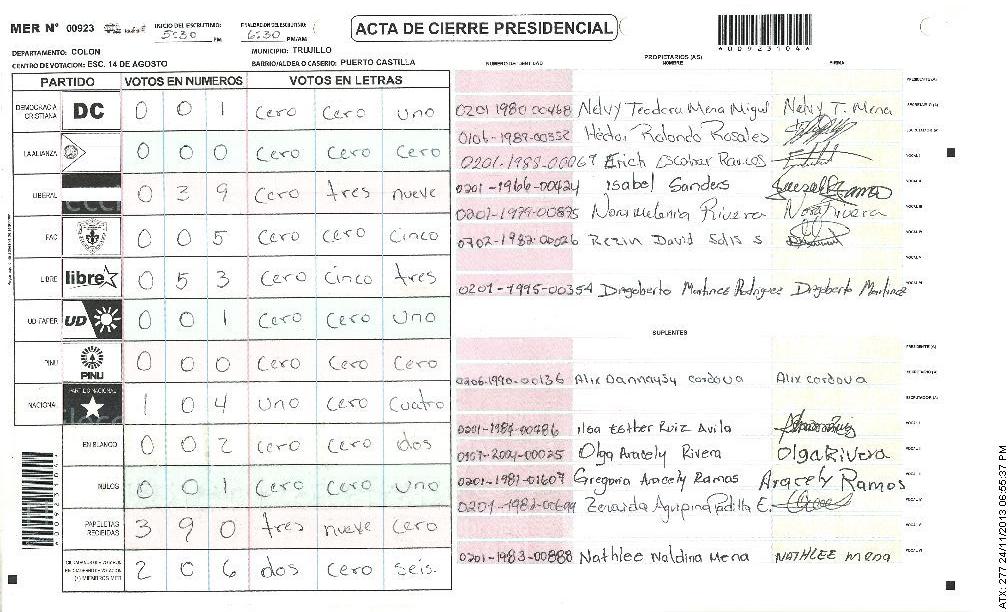 MER N° 00923
INICIO DEL ESCRUTINIO: 5:30 PM
FINALIZACION DEL ESCRUTINIO: 6:30 PM/AM
ACTA DE CIERRE PRESIDENCIAL
DEPARTAMENTO: COLON
MUNICIPIO: TRUJILLO
CENTRO DE VOTACION: ESC. 14 DE AGOSTO
BARRIO/ALDEA O CASERIO: PUERTO CASTILLA
PARTIDO VOTOS EN NUMEROS VOTOS EN LETRAS
DEMOCRACIA CRISTIANA DC 0 0 1 cero cero uno
LA ALIANZA 0 0 0 cero cero cero
LIBERAL 0 3 9 cero tres nueve
PAC 0 0 5 cero cero cinco
LIBRE libre 0 5 3 cero cinco tres
UD FAPER UD 0 0 1 cero cero uno
PINU PINU 0 0 0 cero cero cero
NACIONAL PARTIDO NACIONAL 1 0 4 uno cero cuatro
EN BLANCO 0 0 2 cero cero dos
NULOS 0 0 1 cero cero uno
PAPELETAS RECIBIDAS 3 9 0 tres nueve cero
2 0 6 dos cero seis.
NUMERO DE IDENTIDAD
PROPIETARIOS (AS)
NOMBRE
FIRMA
0201 1980 00468 Nelvy Teodora Mena Migul Nelvy T. Mena
0106-1982-00352 Héctor Rolando Rosales
0201-1988-00067 Erich Escobar Ramos
0201-1966-00424 Isabel Sanders
0201-1979-00875 Nora Melania Rivera Nora Rivera
0702-1982-00026 Rezin David Solis S
0201-1995-00354 Dagoberto Martinez Rodriguez Dagoberto Martinez
SUPLENTES
0206-1990-00136 Alix Dannaysy cordova Alix cordova
0201-1984-00486 Ilsa Esther Ruiz Avila
Olga Aracely Rivera Olga Rivera
0201-1981-01607 Gregoria Aracely Ramos Aracely Ramos
Zenaida Agripina Padilla E.
0201-1983-00888 Nathlee Naldina Mena NATHLEE mena
A00923104
ATX: 277 24/11/2013 06:55:37 PM